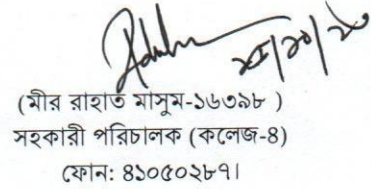 (মীর রাহাত মাসুম-১৬৩৯৮ )
সহকারী পরিচালক (কলেজ-4)
ফোন: ৪১০৫০২৮৭।